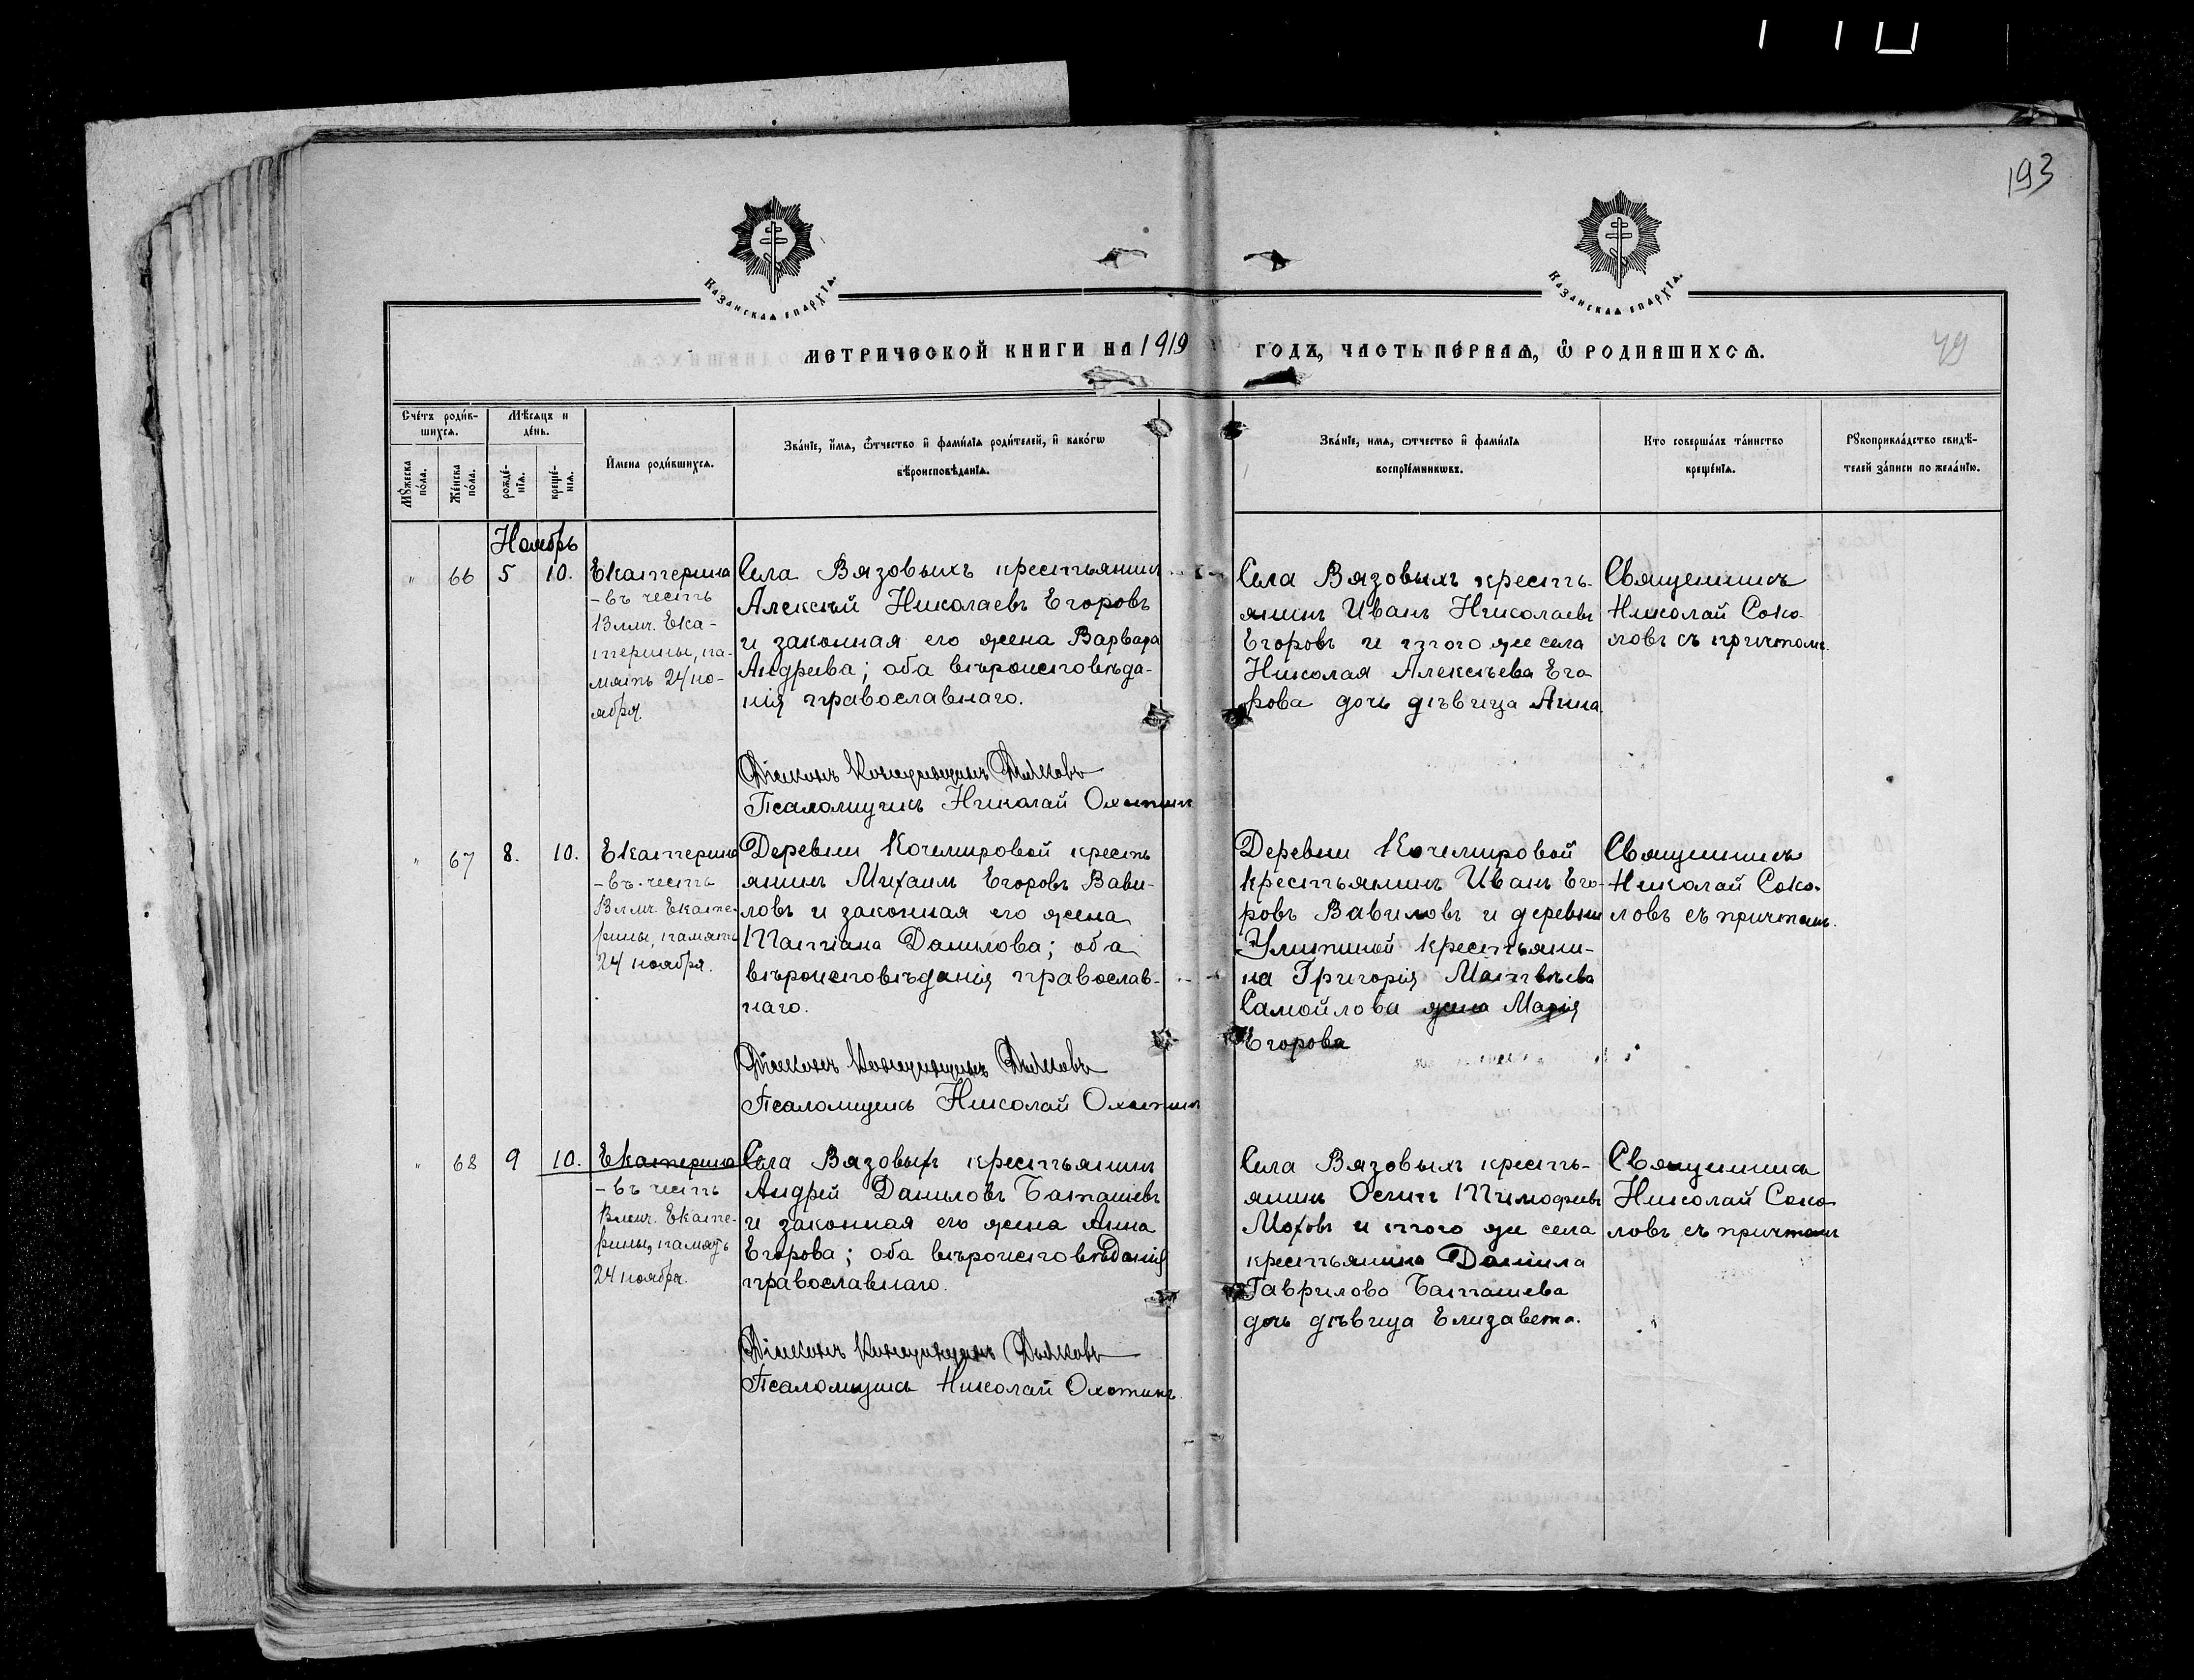 193
Казанская епархїѧ.
Казанская епархїѧ.
МЕТРИЧЕСКОЙ КНИГИ НА 1919
ГОДЪ, ЧАСТЬ ПЕ́РВАЯ, Ѡ РОДИВШИХСѦ.
49
Сче́тъ роди́в-
шихсѧ.
Мѣ́сѧцъ и
де́нь.
И҆мена роди́вшихсѧ.
Зва́нїе, и҆́мѧ, ѻ҆́тчество и҆ фами́лїѧ роди́телей, и҆ како́гѡ
вѣроисповѣ́данїѧ.
Мꙋ́жеска
по́ла.
Же́нска
по́ла.
рожде́-
нїѧ.
креще́-
нїѧ.
Зва́нїе, имѧ, ѻтчество и҆ фами́лїѧ
воспрїе́мникѡвъ.
Кто соверша́лъ та́инство
креще́нїѧ.
Рꙋкоприкла́дство свидѣ́-
телей за́писи по жела́нїю.
Ноябрь
„ 66 5 10.
Екатерина
– въ честь
Влмч. Ека-
терины, па-
мять 24 но-
ября.
Села Вязовыхъ крестьянинъ
Алексѣй Николаевъ Егоровъ
и законная его жена Варвара
Андреева; оба вѣроисповѣда-
нія православнаго.
Діаконъ Константинъ Дьяковъ
Псаломщикъ Николай Охотинъ
Села Вязовыхъ кресть-
янинъ Иванъ Николаевъ
Егоровъ и того же села
Николая Алексѣева Его-
рова дочь дѣвица Анна.
Священникъ
Николай Соко-
ловъ съ причтомъ.
„ 67 8. 10.
Екатерина
– въ честь
Влмч. Екате-
рины, память
24 ноября.
Деревни Кочемировой кресть
янинъ Михаилъ Егоровъ Вави-
ловъ и законная его жена
Татіана Данилова; оба
вѣроисповѣданія православ-
наго.
Діаконъ Константинъ Дьяковъ
Псаломщикъ Николай Охотинъ
Деревни Кочемировой
крестьянинъ Иванъ Его-
ровъ Вавиловъ и деревни
Улитиной крестьяни-
на Григорія Матвѣева
Самойлова жена Марія
Егорова
Священникъ
Николай Соко-
ловъ съ причтомъ.
„ 68 9 10.
Екатерина
– въ честь
Влмч. Екате-
рины, память
24 ноября.
Села Вязовыхъ крестьянинъ
Андрей Даниловъ Баташевъ
и законная его жена Анна
Егорова; оба вѣроисповѣданія
православнаго.
Діаконъ Константинъ Дьяковъ
Псаломщикъ Николай Охотинъ.
Села Вязовыхъ кресть-
янинъ Осипъ Тимофеевъ
Моховъ и того же села
крестьянина Даніила
Гаврилова Баташева
дочь дѣвица Елизавета.
Священникъ
Николай Соко-
ловъ съ причтомъ